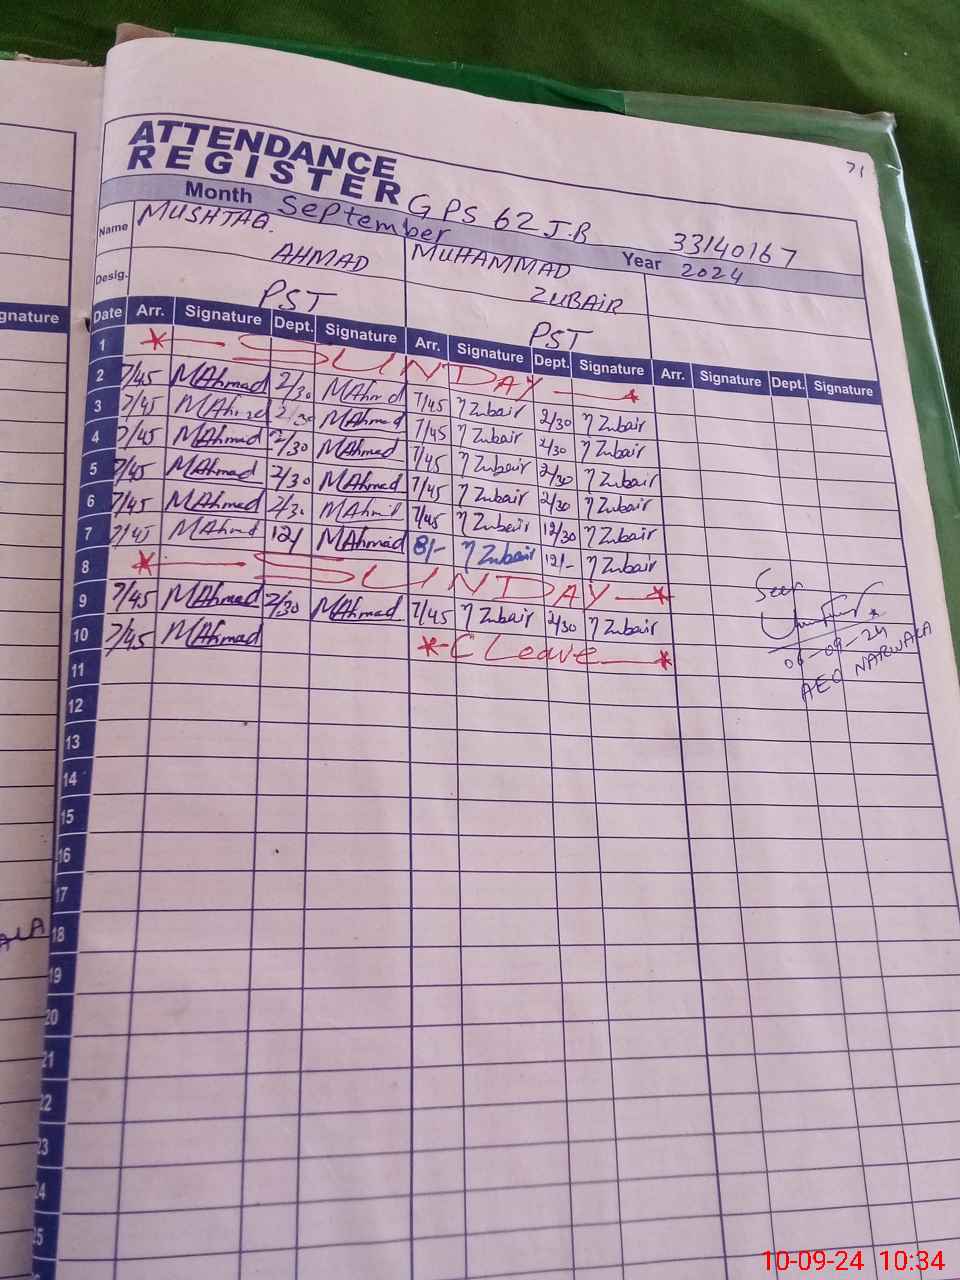 71
ATTENDANCE
REGISTER
GPS 62 J.B 33140167
Month September Year 2024
Name MUSHTAQ. AHMAD MUHAMMAD ZUBAIR
Desig. PST PST
gnature Date Arr. Signature Dept. Signature Arr. Signature Dept. Signature Arr. Signature Dept. Signature
1 * SUNDAY *
2 7/45 MAhmad 2/30 MAhmd 7/45 Zubair 2/30 Zubair
3 7/45 MAhmad 2/30 MAhmad 7/45 Zubair 2/30 Zubair
4 7/45 MAhmad 2/30 MAhmad 7/45 Zubair 2/30 Zubair
5 7/45 MAhmad 2/30 MAhmad 7/45 Zubair 2/30 Zubair
6 7/45 MAhmad 2/30 MAhmd 7/45 Zubair 12/30 Zubair
7 7/45 MAhmad 12/ MAhmad 8/- Zubair 12/- Zubair
8 * SUNDAY *
9 7/45 MAhmad 2/30 MAhmad 7/45 Zubair 2/30 Zubair
10 7/45 MAhmad * C Leave *
Seen
06-09-24
AEO NARWALA
11
12
13
14
15
16
17
ALA 18
19
20
21
22
23
24
25
10-09-24 10:34